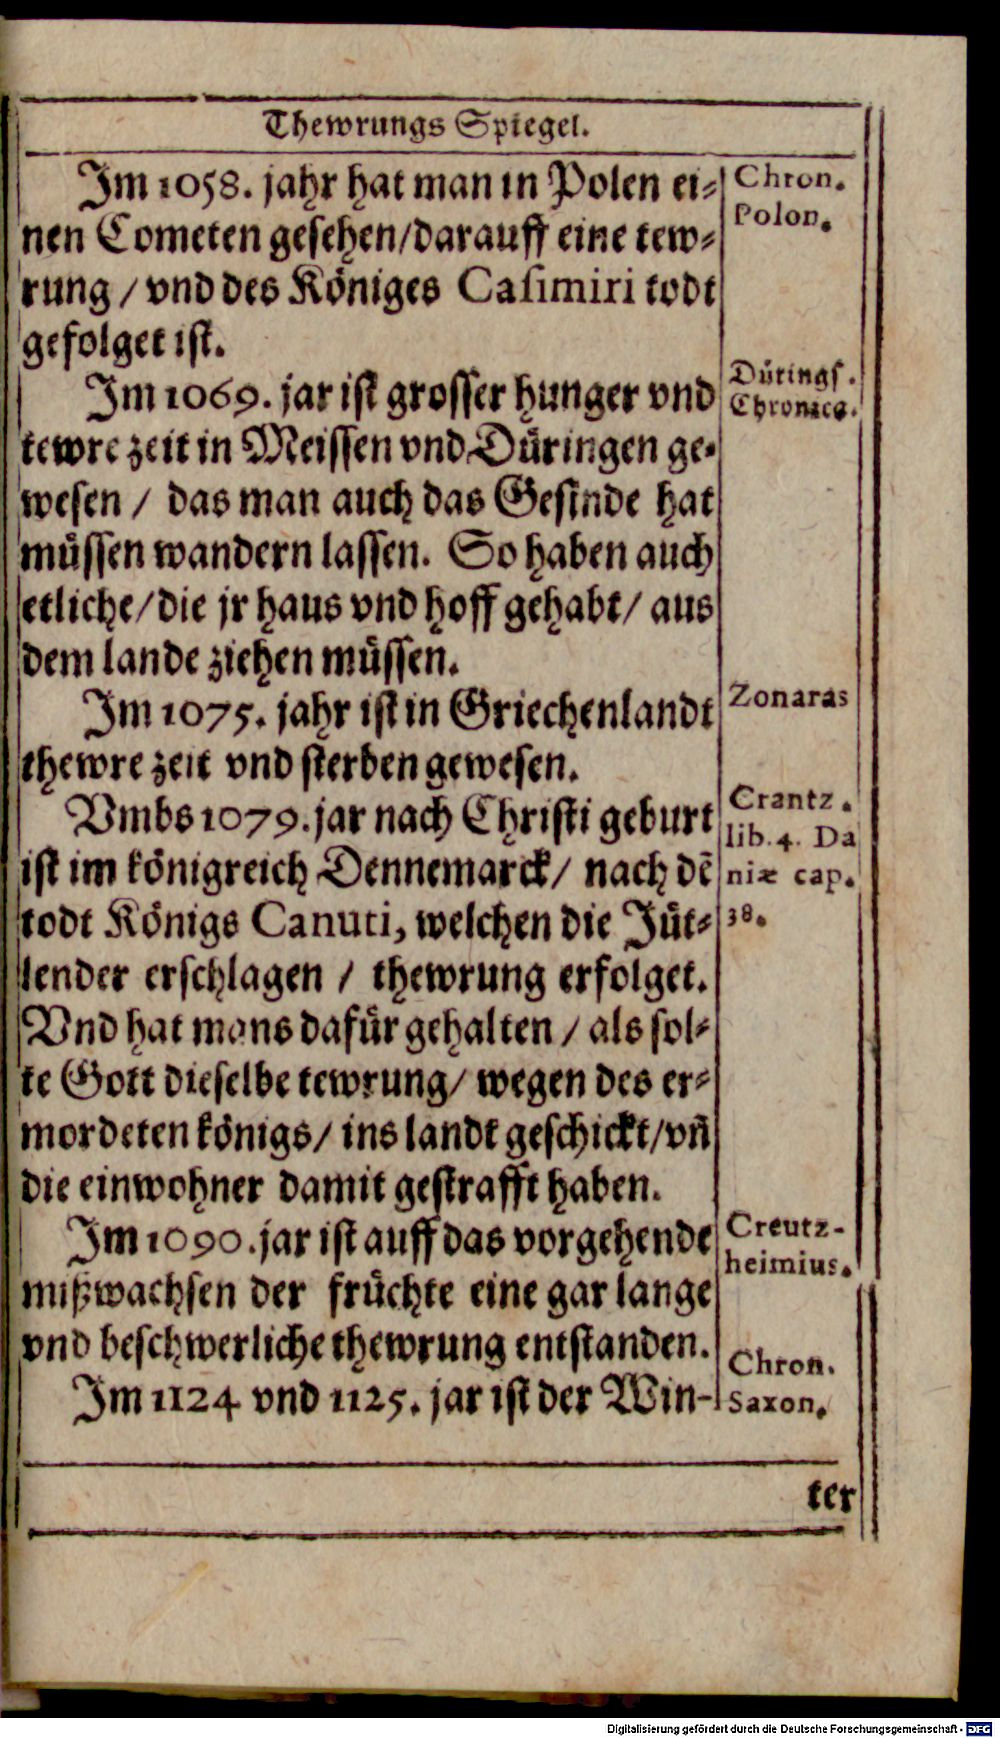 Thewrungs Spiegel.
Im 1058. jahr hat man in Polen ei⸗
nen Cometen gesehen/darauff eine tew⸗
rung / vnd des Königes Casimiri todt
gefolget ist.
Chron.
Polon.
Im 1069. jar ist grosser hunger vnd
tewre zeit in Meissen vnd Düringen ge⸗
wesen / das man auch das Gesinde hat
müssen wandern lassen. So haben auch
etliche/die jr haus vnd hoff gehabt/ aus
dem lande ziehen müssen.
Dürings.
Chronica.
Im 1075. jahr ist in Griechenlandt
thewre zeit vnd sterben gewesen.
Zonaras
Vmbs 1079. jar nach Christi geburt
ist im königreich Dennemarck/ nach dē
todt Königs Canuti, welchen die Jüt⸗
lender erschlagen / thewrung erfolget.
Vnd hat mans dafür gehalten / als sol⸗
te Gott dieselbe tewrung/ wegen des er⸗
mordeten königs/ ins landt geschickt/vñ
die einwohner damit gestrafft haben.
Crantz.
lib. 4. Da
niæ cap.
38.
Im 1090. jar ist auff das vorgehende
mißwachsen der früchte eine gar lange
vnd beschwerliche thewrung entstanden.
Creutz-
heimius.
Im 1124 vnd 1125. jar ist der Win-
Chron.
Saxon.
ter
Digitalisierung gefördert durch die Deutsche Forschungsgemeinschaft - DFG